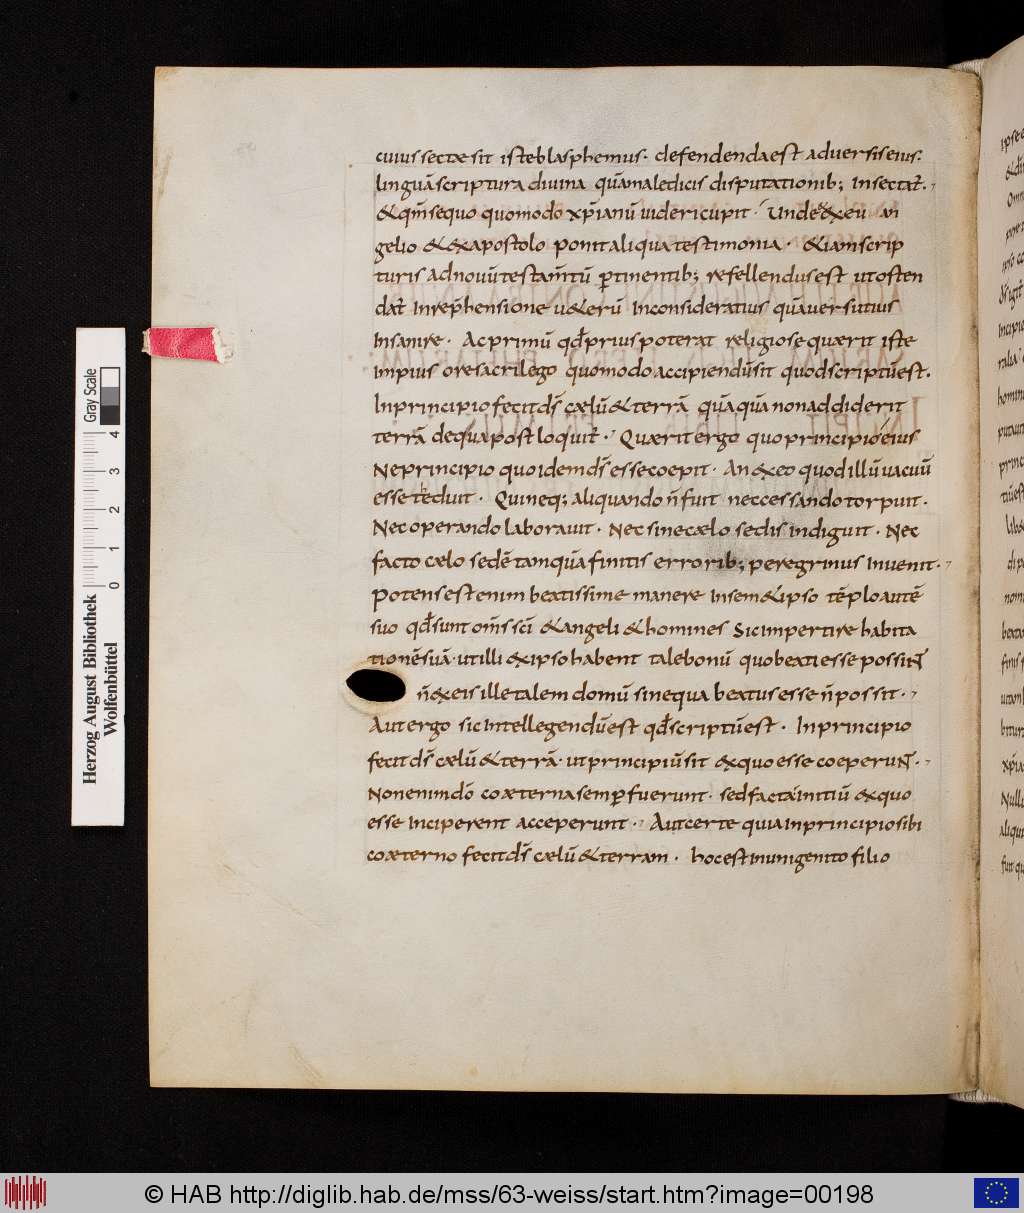 cuius sectae sit iste blasphemus · defendenda est adversis eius
linguā scriptura divina quā maledicis disputationib; Insectat̄ ·
& qm̄ se quo quomodo xp̄ianū videri cupit · Unde & ex eu an
gelio & ex apostolo ponit aliqua testimonia · & iam scrip
turis ad novū testam̄tū ꝑtinentib; refellendus est ut osten
dat̄ In rep̄hensione veterū Inconsideratius quā versutius
Insanire · Ac primū qd̄ prius poterat religiose quaerit iste
Impius ore sacrilego quomodo accipiendū sit quod scriptū est ·
In principio fecit ds̄ caelū & terrā quāquā non addiderit
terrā de qua post loquit̄ · Quaerit ergo quo principio eius
Ne principio quo idem ds̄ esse coepit · An ex eo quod illū vacuū
esse teduit · Qui neq; aliquando n̄ fuit nec cessando torpuit ·
Nec operando laboravit · Nec sine caelo sedis indiguit · Nec
facto caelo sedē tamquā finitis errorib; peregrinus Invenit ·
Potens est enim beatissime manere In sem&ipso tēplo autē
suo qd̄ sunt om̄s sc̄i & angeli & homines Sic impertire habita
tionē suā · ut illi ex ipso habent tale bonū quo beati esse possinT
n̄ ex eis ille talem domū sine qua beatus esse n̄ possit ·
Aut ergo sic Intellegendū est qd̄ scriptū est · In principio
fecit ds̄ caelū & terrā · ut principiū sit ex quo esse coeperunT ·
Non enim dō coaeterna semꝑ fuerunt · sed facta initiū ex quo
esse Inciperent acceperunt · Aut certe quia in principio sibi
coaeterno fecit ds̄ caelū & terram · hoc est in unigenito filio
Gray Scale
4
3
2
1
0
Herzog August Bibliothek
Wolfenbüttel
© HAB http://diglib.hab.de/mss/63-weiss/start.htm?image=00198